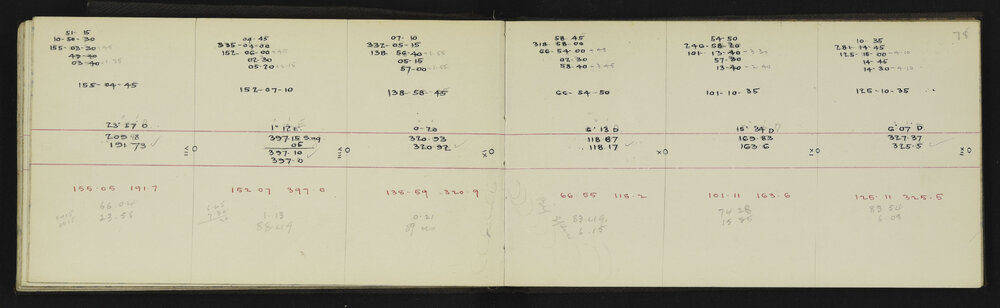 75
51. 15
10. 50. 30
155. 03. 30
49. 40
03. 40
155. 04. 45
23° 57 D
209.8
191.73
VI 0
155.05 191.7
66.04
23.56
04. 45
335. 04. 00
152. 06. 00
02. 30
05. 20
152. 07. 10
1° 12 E
397.15 Sng
05
397.10
397.0
VIII 0
152.07 397.0
1.13
88.49
07. 10
332. 05. 15
138. 56. 40
05. 15
57. 00
138. 58. 45
0. 20
320.93
320.92
IX 0
138.59 320.9
0.21
58. 45
318. 58. 00
66. 54. 00
02. 30
58. 40
66. 54. 50
6° 13 D
118.87
118.17
X 0
66.55 118.2
83.49
6.15
54. 50
246. 58. 20
101. 13. 40
57. 30
13. 40
101. 10. 35
15° 34 D
169.83
163.6
101.11 163.6
74.28
10. 35
281. 14. 45
125. 15. 00
14. 45
14. 30
125. 10. 35
6° 07 D
327.37
325.5
125.11 325.5
83.54
6.08